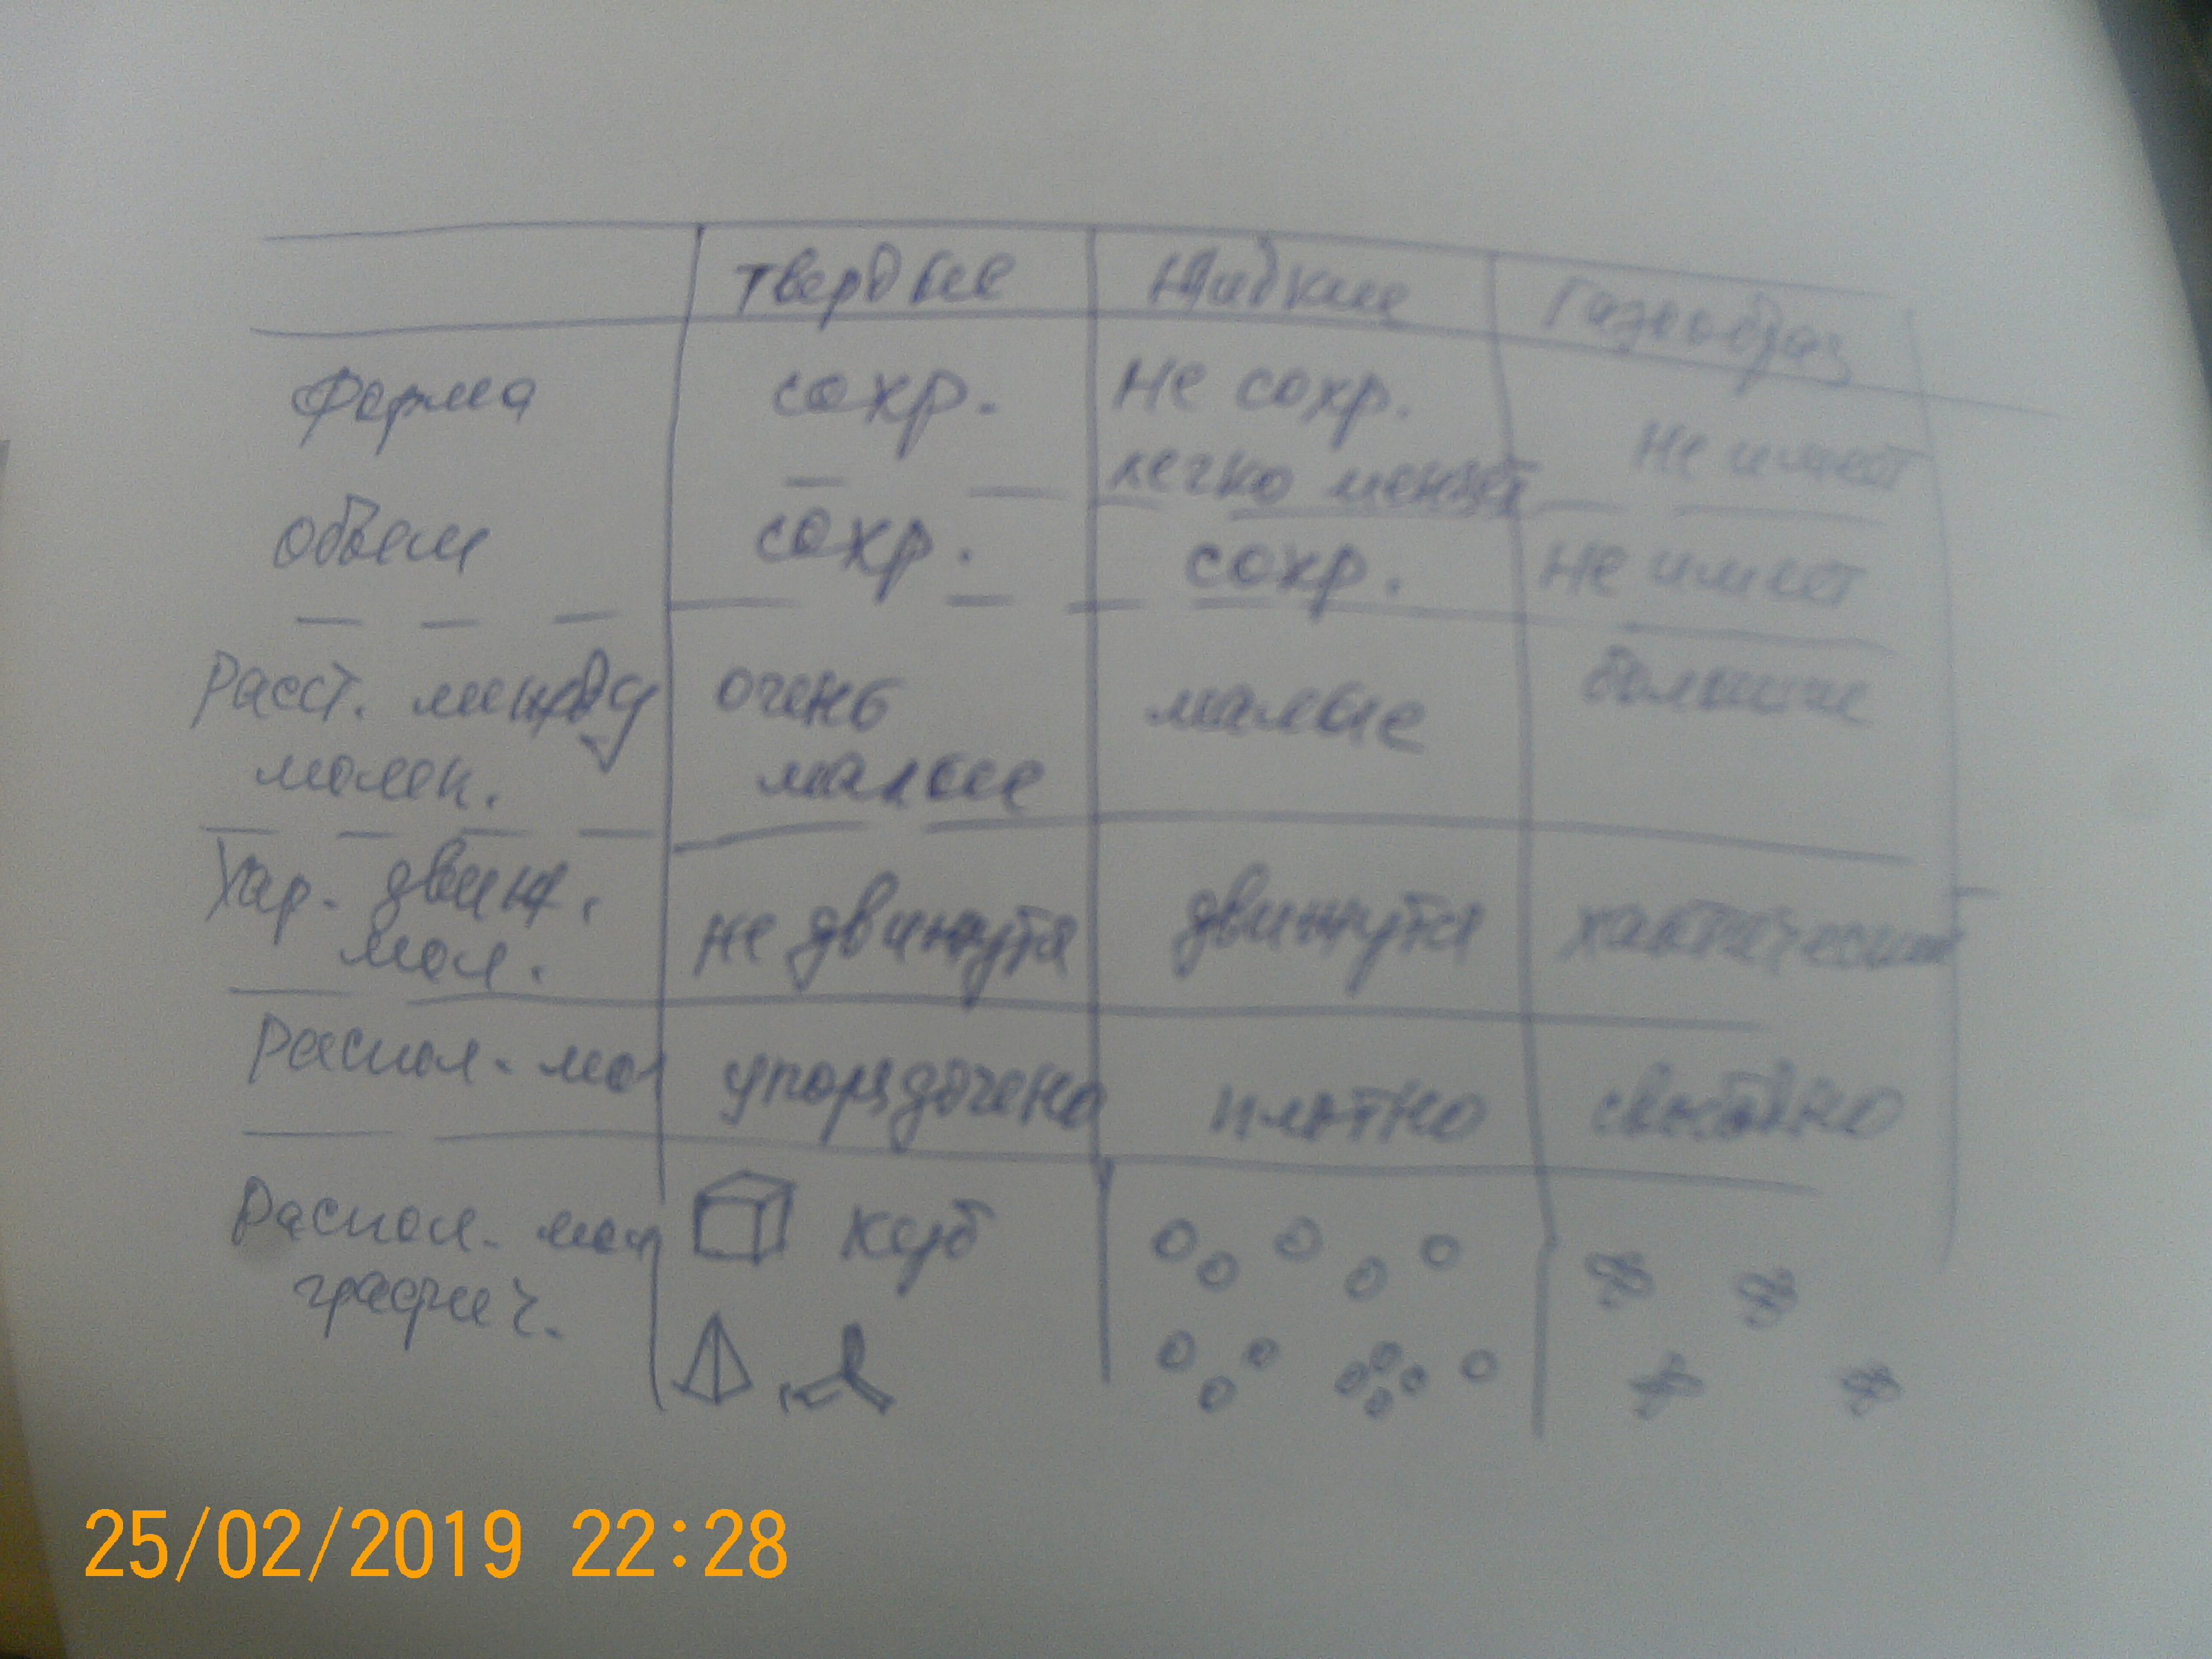 твердые жидкие газообраз
форма сохр. не сохр. не имеет
легко меняет
объем сохр. сохр. не имеет
расст. между очень малые большие
молек. малые
Хар. движ. не движутся движутся хаотически
мол.
Распол. мол упорядочено плотно свободно
Распол. мол куб
графич.
25/02/2019 22:28